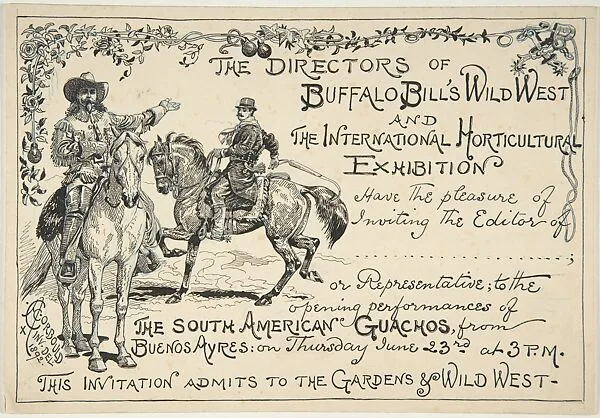 THE DIRECTORS OF
BUFFALO BILL'S WILD WEST
AND
THE INTERNATIONAL HORTICULTURAL
EXHIBITION
Have The pleasure of
Inviting The Editor of
..............................;
or Representative; to the
opening performances of
THE SOUTH AMERICAN GUACHOS, from
BUENOS AYRES: on Thursday June 23rd at 3 P.M.
THIS INVITATION ADMITS TO THE GARDENS & WILD WEST-
INV. DEL.
1892